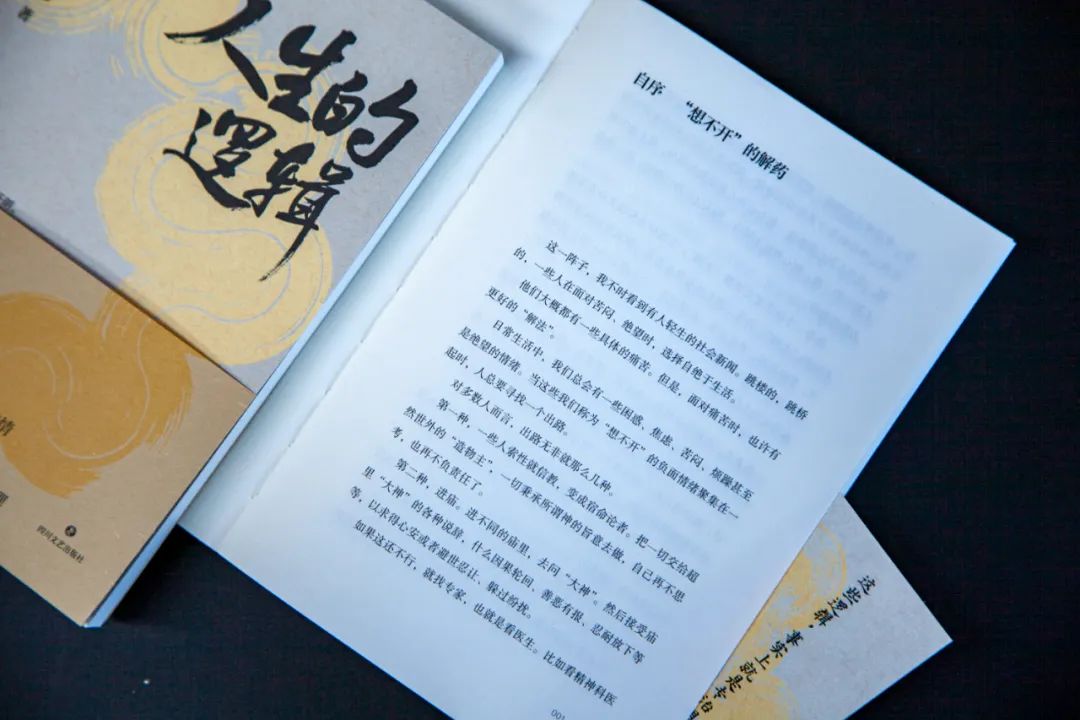 著
人生的
逻辑
四川文艺出版社
自序 “想不开”的解药
这一阵子，我不时看到有人轻生的社会新闻。跳楼的，跳桥
的，一些人在面对苦闷、绝望时，选择自绝于生活。
他们大概都有一些具体的痛苦。但是，面对痛苦时，也许有
更好的“解法”。
日常生活中，我们总会有一些困惑、焦虑、苦闷、烦躁甚至
是绝望的情绪。当这些我们称为“想不开”的负面情绪聚集在一
起时，人总要寻找一个出路。
对多数人而言，出路无非就那么几种。
第一种，一些人索性就信教，变成宿命论者。把一切交给超
然世外的“造物主”，一切秉承所谓神的旨意去做，自己再不思
考，也再不负责了。
第二种，进庙。进不同的庙里，去问“大神”。然后接受庙
里“大神”的各种说辞，什么因果轮回、善恶有报、忍耐放下等
等，以求得心安或者避世忍让、躲过纷扰。
如果这还不行，就找专家，也就是看医生。比如看精神科医
001
这些逻辑，事实上就是专治